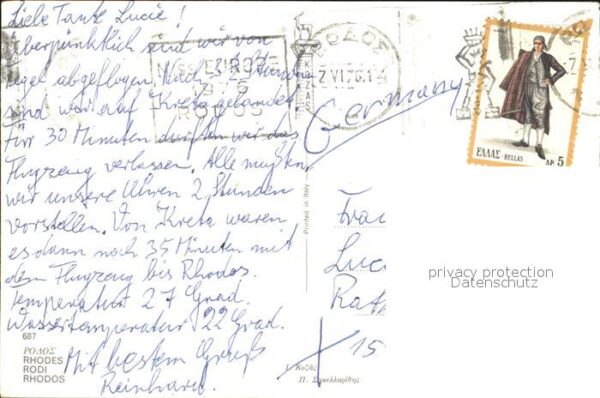 Liebe Tante Lucie!
Überpünktlich sind wir von
abgeflogen. Nach 3 Stunden
sind wir auf Kreta gelandet
Für 30 Minuten durften wir das
Flugzeug verlassen. Alle mußten
wir unsere Uhren 2 Stunden
vorstellen. Von Kreta waren
es dann noch 35 Minuten mit
dem Flugzeug bis Rhodos.
Temperatur 27 Grad.
Wassertemperatur 22 Grad.
Mit bestem Gruß
Reinhard.
687
ΡΟΔΟΣ
RHODES
RODI
RHODOS
Printed in Italy
ΡΟΔΟΣ
7 VI 76.14
RODOS
Germany
ΕΛΛΑΣ-HELLAS
ΔΡ 5
Frau
Luc
privacy protection
Datenschutz
15
Κοζᾶς